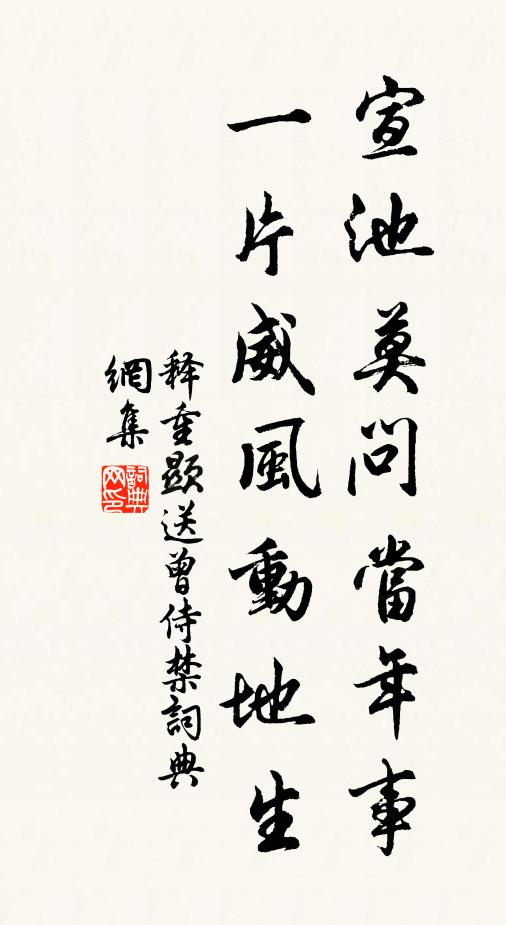 宣池莫問當年事
一片威風動地生
释重顯送曾侍禁詞典
網集
詞典
网印